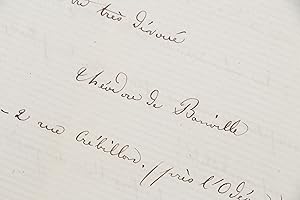 très dévoué
Théodore de Banville
- 2 rue Crébillon. (près l'Odé